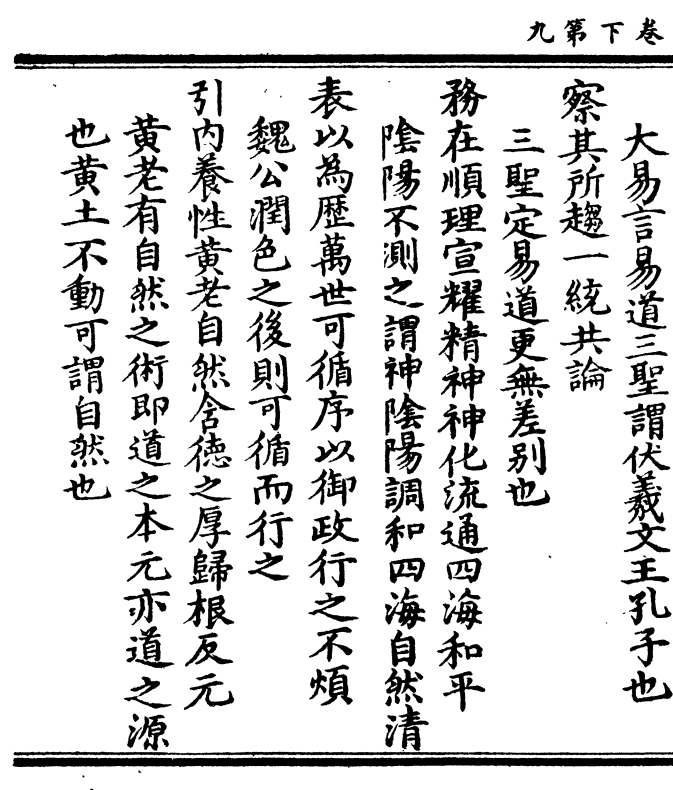 卷下第九
大易言易道三聖謂伏羲文王孔子也
察其所趨一統共論
三聖定易道更無差别也
務在順理宣耀精神神化流通四海和平
陰陽不測之謂神陰陽調和四海自然清
表以為歷萬世可循序以御政行之不煩
魏公潤色之後則可循而行之
引内養性黄老自然含德之厚歸根反元
黄老有自然之術即道之本元亦道之源
也黄土不動可謂自然也